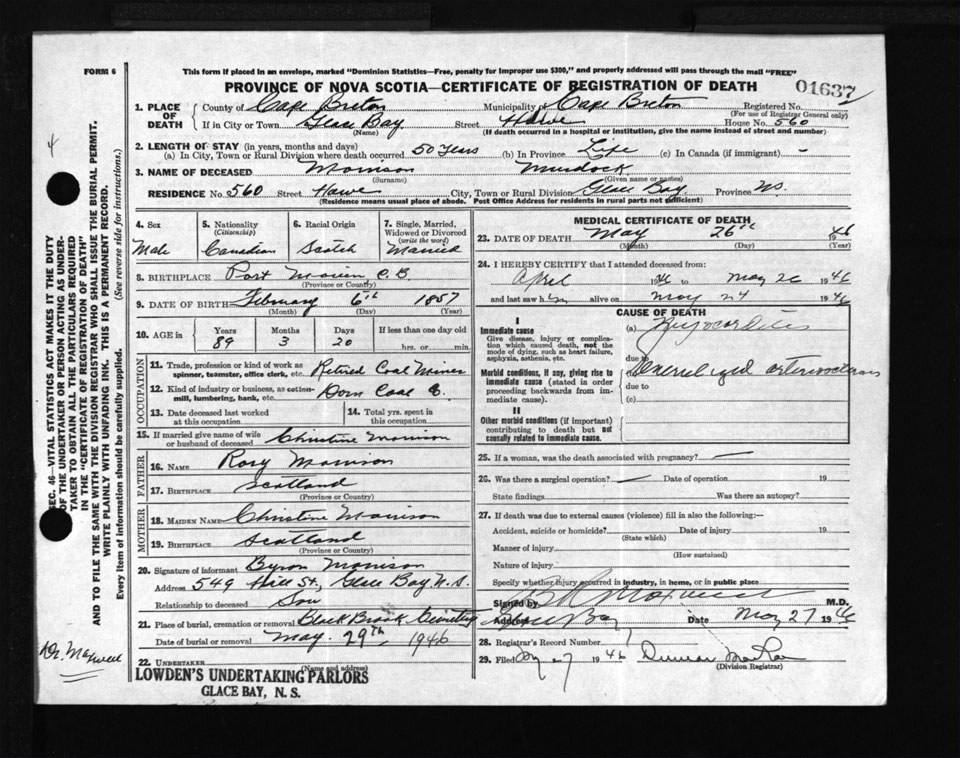 FORM 6
This form if placed in an envelope, marked "Dominion Statistics—Free, penalty for improper use $300," and properly addressed will pass through the mail "FREE"
PROVINCE OF NOVA SCOTIA—CERTIFICATE OF REGISTRATION OF DEATH
01637
1. PLACE OF DEATH
County of Cape Breton Municipality of Cape Breton Registered No.
(For use of Registrar General only)
If in City or Town Glace Bay Street House No. 560
(Name) (If death occurred in a hospital or institution, give the name instead of street and number)
2. LENGTH OF STAY (in years, months and days)
(a) In City, Town or Rural Division where death occurred 50 Years (b) In Province Life (c) In Canada (if immigrant) —
3. NAME OF DECEASED Morrison Murdock
(Surname) (Given name or names)
RESIDENCE No. 560 Street City, Town or Rural Division Glace Bay Province N.S.
(Residence means usual place of abode. Post Office Address for residents in rural parts not sufficient)
4. Sex
Male
5. Nationality
(Citizenship)
Canadian
6. Racial Origin
Scotch
7. Single, Married, Widowed or Divorced
(write the word)
Married
8. BIRTHPLACE Port Morien C.B.
(Province or Country)
9. DATE OF BIRTH February 6th 1857
(Month) (Day) (Year)
10. AGE in
Years Months Days If less than one day old
89 3 20 hrs. or min.
OCCUPATION
11. Trade, profession or kind of work as spinner, teamster, office clerk, etc. Retired Coal Miner
12. Kind of industry or business, as cotton-mill, lumbering, bank, etc. Dom Coal Co.
13. Date deceased last worked at this occupation
14. Total yrs. spent in this occupation
15. If married give name of wife or husband of deceased Christine Morrison
FATHER
16. NAME Rory Morrison
17. BIRTHPLACE Scotland
(Province or Country)
MOTHER
18. MAIDEN NAME Christine Morrison
19. BIRTHPLACE Scotland
(Province or Country)
20. Signature of Informant Byron Morrison
Address 549 St, Glace Bay N.S.
Relationship to deceased Son
21. Place of burial, cremation or removal Black Brook Cemetery
Date of burial or removal May 29th 1946
22. UNDERTAKER
(Name and address)
LOWDEN'S UNDERTAKING PARLORS
GLACE BAY, N. S.
MEDICAL CERTIFICATE OF DEATH
23. DATE OF DEATH May 26th 1946
(Month) (Day) (Year)
24. I HEREBY CERTIFY that I attended deceased from:
April 1946 to May 26 1946
and last saw him alive on May 24 1946
CAUSE OF DEATH
I
Immediate cause
Give disease, injury or complication which caused death, not the mode of dying, such as heart failure, asphyxia, asthenia, etc.
(a) Myocarditis
due to
Morbid conditions, if any, giving rise to immediate cause (stated in order proceeding backwards from immediate cause).
Generalized arteriosclerosis
due to
(c)
II
Other morbid conditions (if important) contributing to death but not causally related to immediate cause.
25. If a woman, was the death associated with pregnancy? —
26. Was there a surgical operation? — Date of operation 19
State findings Was there an autopsy?
27. If death was due to external causes (violence) fill in also the following:
Accident, suicide or homicide? Date of injury 19
(State which)
Manner of injury
(How sustained)
Nature of injury
Specify whether injury occurred in industry, in home, or in public place
Signed by Maxwell M.D.
Address Glace Bay Date May 27 1946
28. Registrar's Record Number
29. Filed 27 1946 Duncan
(Division Registrar)
SEC. 46—VITAL STATISTICS ACT MAKES IT THE DUTY
OF THE UNDERTAKER OR PERSON ACTING AS UNDER-
TAKER TO OBTAIN ALL THE PARTICULARS REQUIRED
IN THE "CERTIFICATE OF REGISTRATION OF DEATH"
AND TO FILE THE SAME WITH THE DIVISION REGISTRAR WHO SHALL ISSUE THE BURIAL PERMIT.
WRITE PLAINLY WITH UNFADING INK. THIS IS A PERMANENT RECORD.
Every item of information should be carefully supplied. (See reverse side for instructions.)
4
Dr. Maxwell